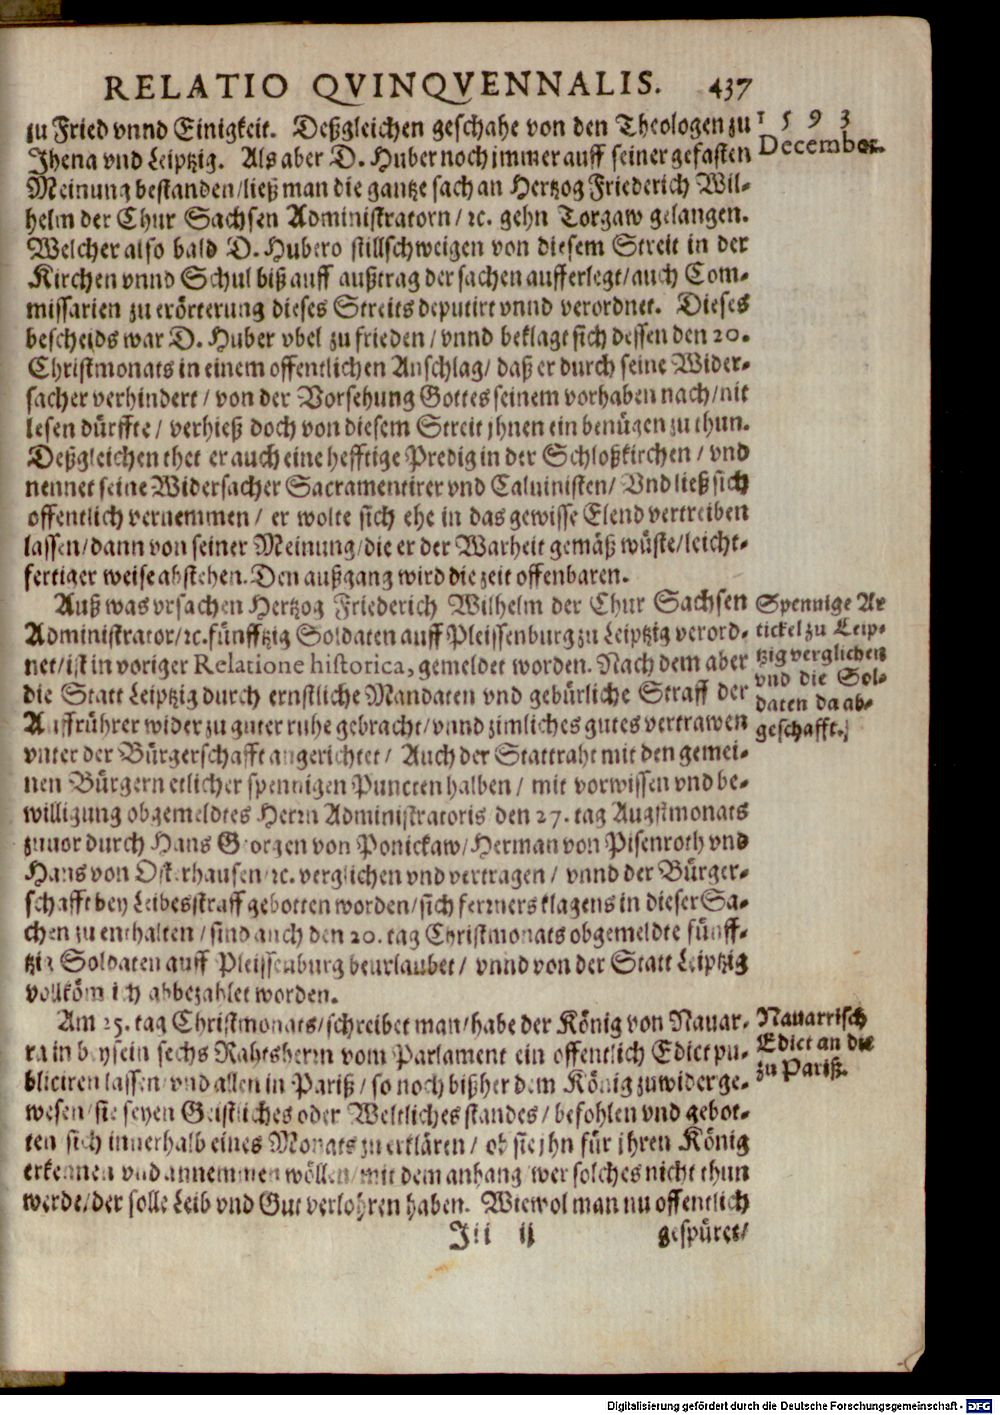 RELATIO QVINQVENNALIS. 437
1593
December.
zu Fried vnnd Einigkeit. Deßgleichen geschahe von den Theologen zu
Jhena vnd Leiptzig. Als aber D. Huber noch jmmer auff seiner gefasten
Meinung bestanden/ ließ man die gantze sach an Hertzog Friederich Wil-
helm der Chur Sachsen Administratorn/ ꝛc. gehn Torgaw gelangen.
Welcher also bald D. Hubero stillschweigen von diesem Streit in der
Kirchen vnnd Schul biß auff außtrag der sachen aufferlegt/ auch Com-
missarien zu erörterung dieses Streits deputirt vnnd verordnet. Dieses
bescheids war D. Huber vbel zu frieden/ vnnd beklagt sich dessen den 20.
Christmonats in einem offentlichen Anschlag/ daß er durch seine Wider-
sacher verhindert/ von der Vorsehung Gottes seinem vorhaben nach/ nit
lesen dürffte/ verhieß doch von diesem Streit jhnen ein benügen zu thun.
Deßgleichen thet er auch eine hefftige Predig in der Schloßkirchen/ vnd
nennet seine Widersacher Sacramentirer vnd Caluinisten/ Vnd ließ sich
offentlich vernemmen/ er wolte sich ehe in das gewisse Elend vertreiben
lassen/ dann von seiner Meinung/ die er der Warheit gemäß wüste/ leicht-
fertiger weise abstehen. Den außgang wird die zeit offenbaren.
Auß was vrsachen Hertzog Friederich Wilhelm der Chur Sachsen
Administrator/ ꝛc. fünfftzig Soldaten auff Pleissenburg zu Leiptzig verord-
net/ ist in voriger Relatione historica, gemeldet worden. Nach dem aber
die Statt Leiptzig durch ernstliche Mandaten vnd gebürliche Straff der
Auffrührer wider zu guter ruhe gebracht/ vnnd zimliches gutes vertrawen
vnter der Bürgerschafft angerichtet/ Auch der Stattraht mit den gemei-
nen Bürgern etlicher spennigen Puncten halben/ mit vorwissen vnd be-
willigung obgemeldtes Herrn Administratoris den 27. tag Augstmonats
zuuor durch Hans Georgen von Ponickaw/ Herman von Pisenroth vnd
Hans von Osterhausen/ ꝛc. verglichen vnd vertragen/ vnnd der Bürger-
schafft bey Leibesstraff gebotten worden/ sich ferrners klagens in dieser Sa-
chen zu enthalten/ sind auch den 20. tag Christmonats obgemeldte fünff-
tzig Soldaten auff Pleissenburg beurlaubet/ vnnd von der Statt Leiptzig
vollkömlich abbezahlet worden.
Spennige Ar
tickel zu Leip-
tzig verglichen
vnd die Sol-
daten da ab-
geschafft.
Am 25. tag Christmonats/ schreibet man/ habe der König von Nauar-
ra in beysein sechs Rahtsherrn vom Parlament ein offentlich Edict pu-
bliciren lassen/ vnd allen in Pariß/ so noch bißher dem König zuwider ge-
wesen/ sie seyen Geistliches oder Weltliches standes/ befohlen vnd gebot-
ten sich innerhalb eines Monats zu erklären/ ob sie jhn für jhren König
erkennen vnd annemmen wöllen/ mit dem anhang wer solches nicht thun
werde/ der solle Leib vnd Gut verlohren haben. Wiewol man nu offentlich
Nauarrisch
Edict an die
zu Pariß.
Jii ij gespüret/
Digitalisierung gefördert durch die Deutsche Forschungsgemeinschaft - DFG